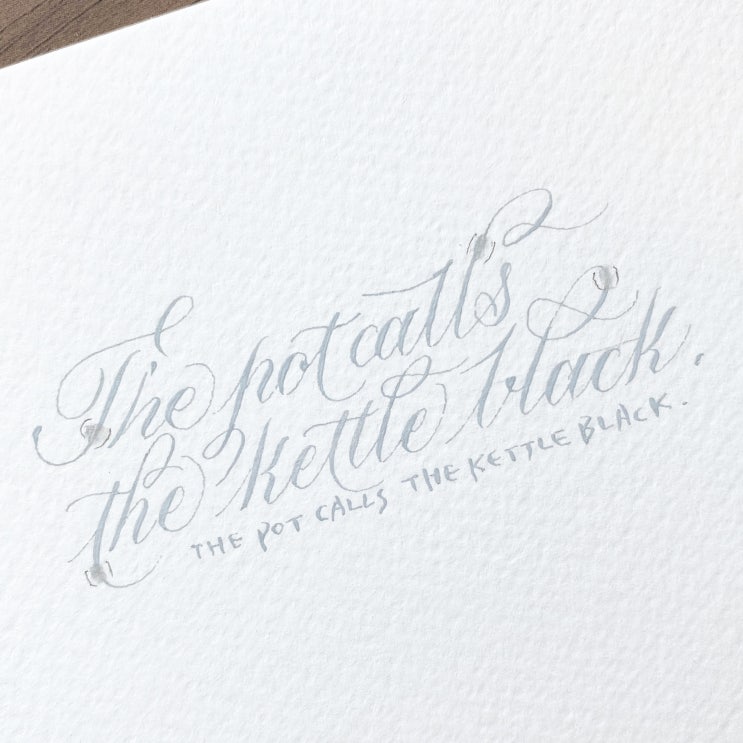 The pot calls
the kettle black.
THE POT CALLS THE KETTLE BLACK.